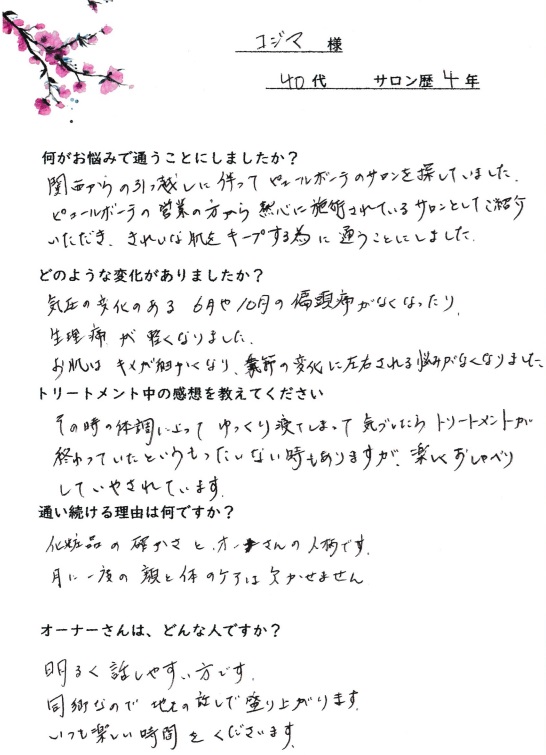 コジマ 様
40代 サロン歴 4年
何がお悩みで通うことにしましたか？
関西からの引っ越しに伴って ピュールボーテのサロンを探していました。
ピュールボーテの営業の方から 熱心に施術されているサロンとしてご紹介
いただき、きれいな肌をキープする為に通うことにしました。
どのような変化がありましたか？
気圧の変化のある 6月や10月の偏頭痛がなくなったり、
生理痛が軽くなりました。
お肌は キメが細かくなり、季節の変化に左右される悩みがなくなりました
トリートメント中の感想を教えてください
その時の体調によって ゆっくり寝てしまって 気づいたら トリートメントが
終わっていたというもったいない時もありますが、楽しくおしゃべり
していやされています。
通い続ける理由は何ですか？
化粧品の確かさと、オーナーさんの人柄です。
月に一度の 顔と体のケアは欠かせません
オーナーさんは、どんな人ですか？
明るく話しやすい方です。
同郷なので 地元の話しで盛り上がります。
いつも楽しい時間をくださいます。